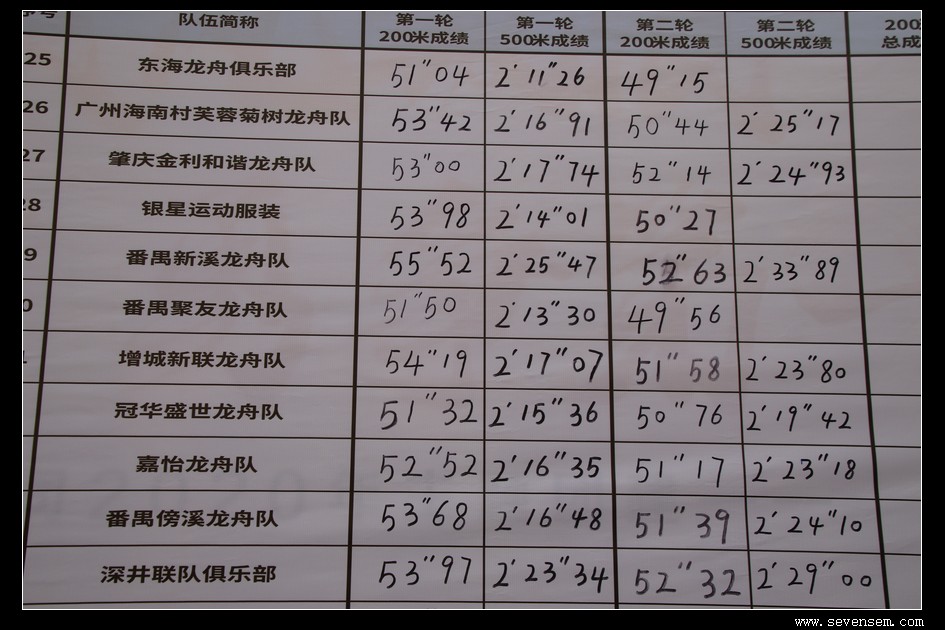 序号 队伍简称 第一轮 200米成绩 第一轮 500米成绩 第二轮 200米成绩 第二轮 500米成绩 200 总成
25 东海龙舟俱乐部 51"04 2'11"26 49"15
26 广州海南村芙蓉菊树龙舟队 53"42 2'16"91 50"44 2'25"17
27 肇庆金利和谐龙舟队 53"00 2'17"74 52"14 2'24"93
28 银星运动服装 53"98 2'14"01 50"27
9 番禺新溪龙舟队 55"52 2'25"47 52"63 2'33"89
0 番禺聚友龙舟队 51"50 2'13"30 49"56
增城新联龙舟队 54"19 2'17"07 51"58 2'23"80
冠华盛世龙舟队 51"32 2'15"36 50"76 2'19"42
嘉怡龙舟队 52"52 2'16"35 51"17 2'23"18
番禺傍溪龙舟队 53"68 2'16"48 51"39 2'24"10
深井联队俱乐部 53"97 2'23"34 52"32 2'29"00
www.sevensem.com